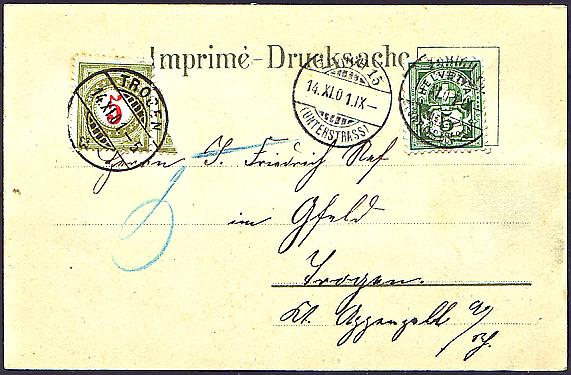 Imprimé-Drucksache
TROGEN
14.XI.01
5
15
14.XI.01.IX—
(UNTERSTRASS)
HELVETIA
Herrn J. Friedrich Nef
im Gfeld
Trogen.
Kt. Appenzell a/Rh.
5